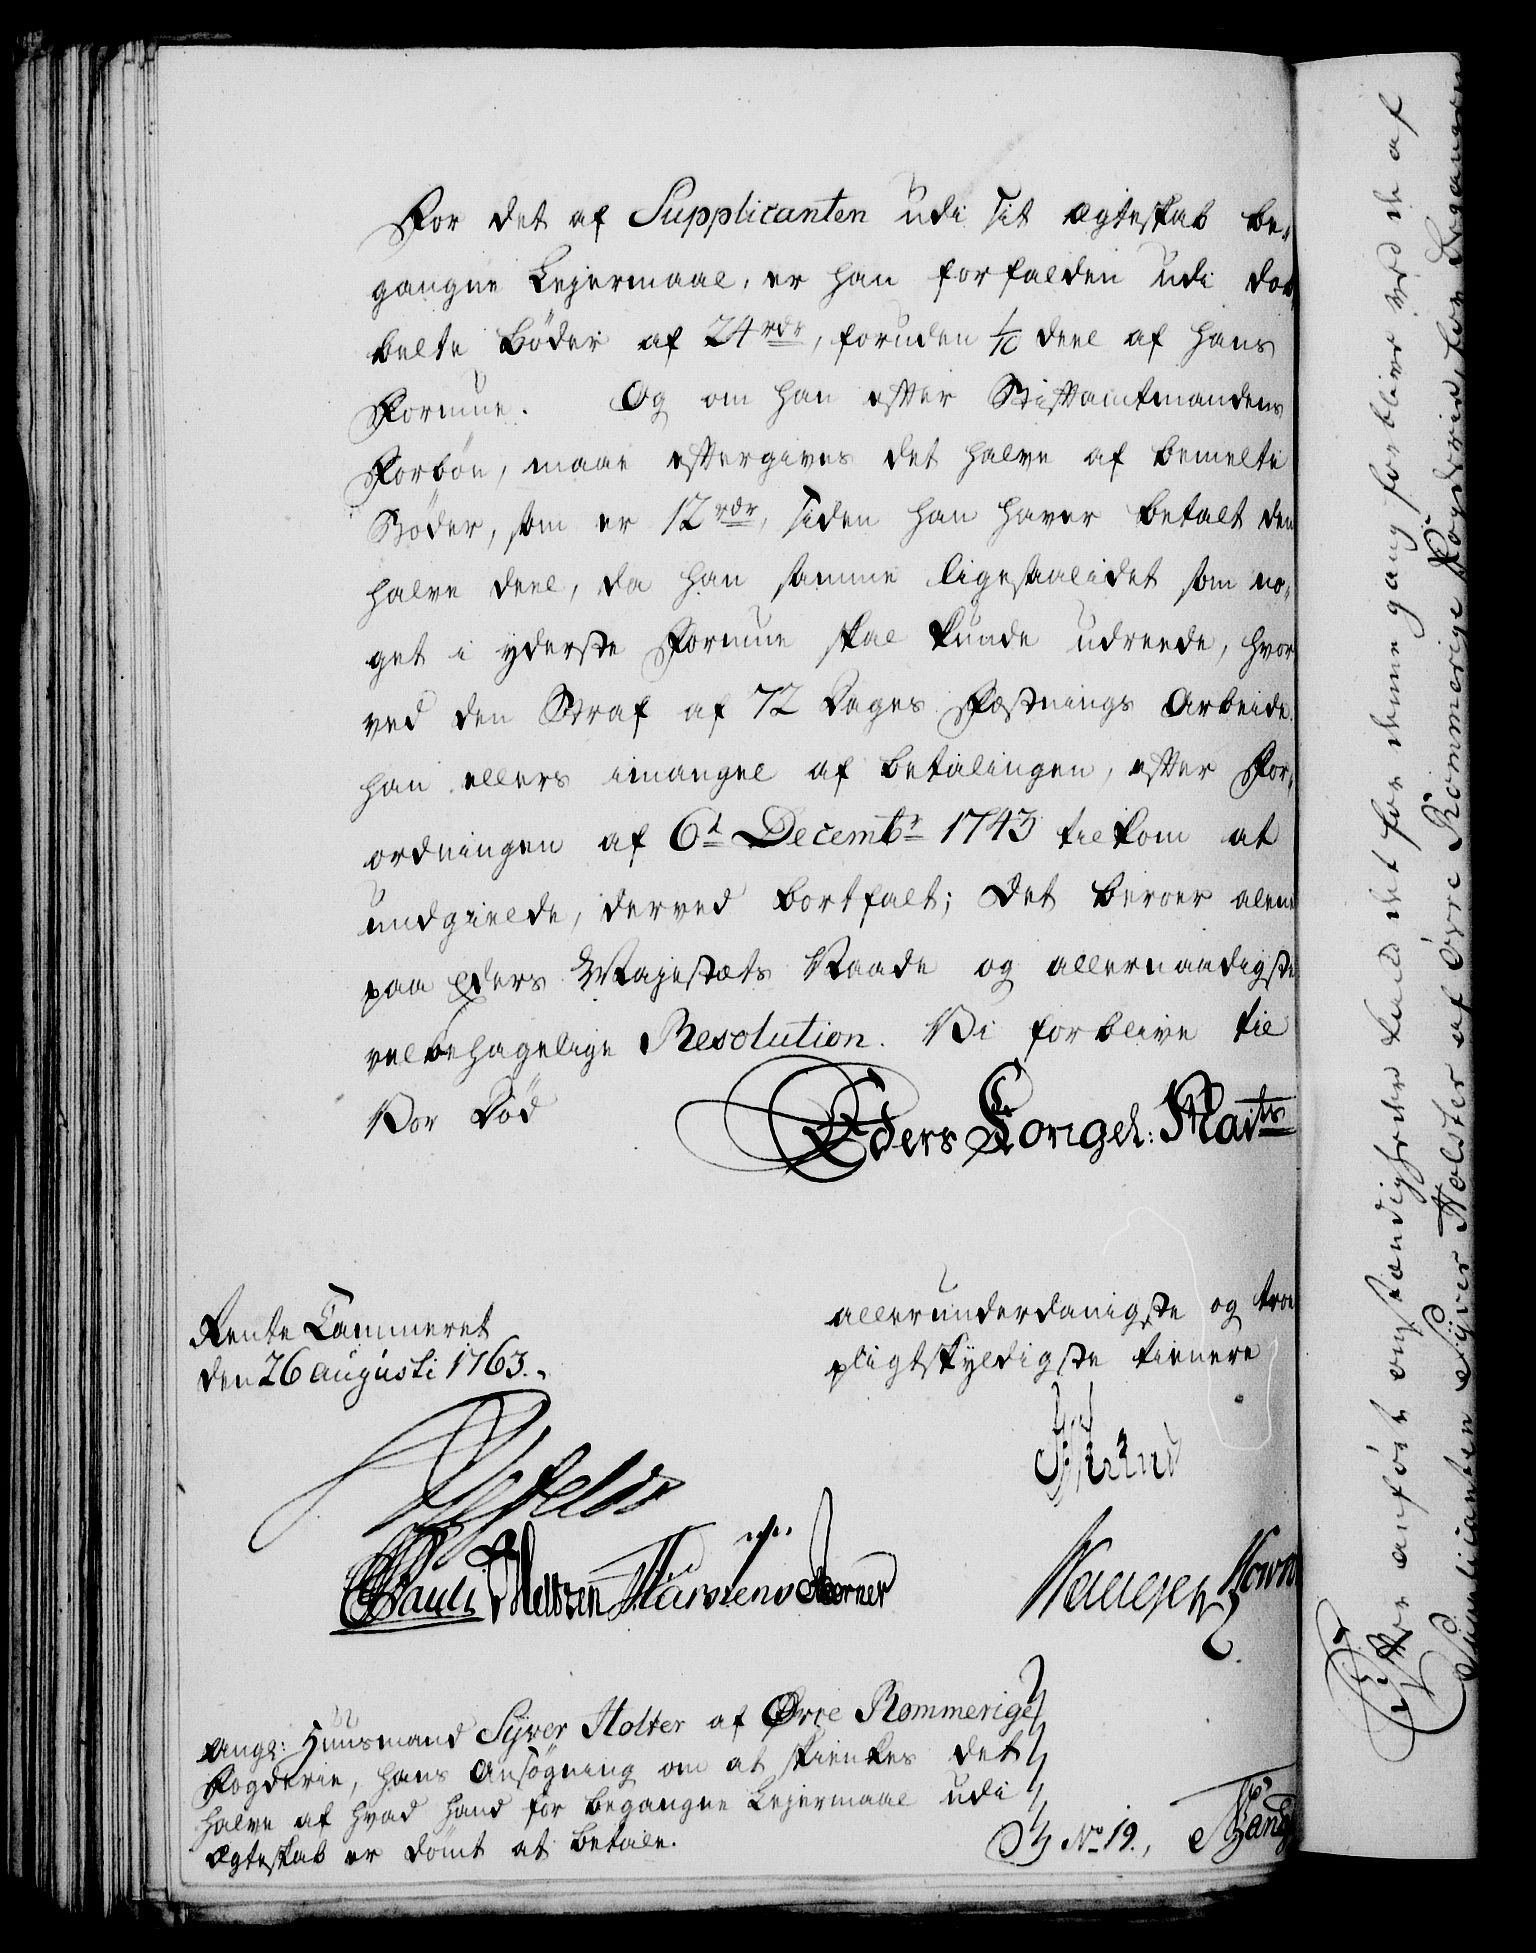 For det af Supplicanten udi sit ægteskab be-
gangne Lejermaal, er han forfalden udi dob
belte Bøder af 24 rdr, foruden 1/10 deel af hans
Formue. Og om han efter Stiftamtmandens
Forbøn, maae eftergives det halve af bemelte
Bøder, som er 12 rdr, siden han haver betalt den
halve deel, da han samme ligesaalidet som no-
get i yderste Formue skal kunde udreede, hvor
ved den Straf af 72 Dages Fæstnings Arbeide
han ellers imangel af betalingen, efter For-
ordningen af 6t Decembr 1743 tilkom at
undgielde, derved bortfalt; Det beroer alene
paa Eders Majestæts Naade og allernaadigste
velbehagelige Resolution. Vi forblive til
Vor Død
Eders Kongel: Maits
Rente Cammeret
den 26 augusti 1763.
allerunderdanigste og troe
pligtskyldigste tienere
Pauli Meltzen Karstens Børner
Ang: Huusmand Syver Holter af Øvre Rommerige
Fogderie, hans Ansøgning om at skienkes det
halve af hvad hand for begangne Lejermaal udi
Ægteskab er dømt at betale.
No 19.
Efter anførte omstændigheder kand det for denne gang forblive ved de af
Supplicanten Syver Holster af Øvre Rommerige Fogderie, for begangne